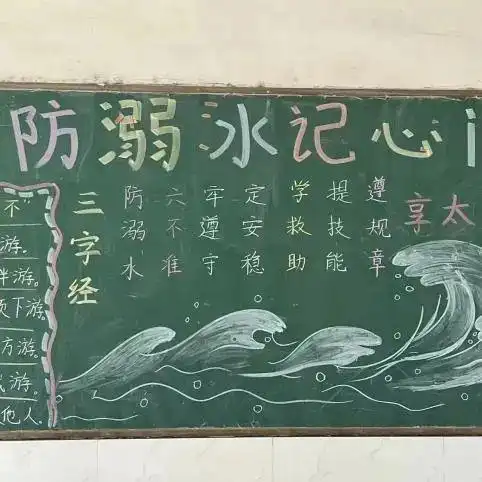 防溺水记心
不”
游。
伴游。
下游。
方游。
游。
他人.
三字经
防溺水
六不准
牢遵守
定安稳
学救助
提技能
遵规章
太
享